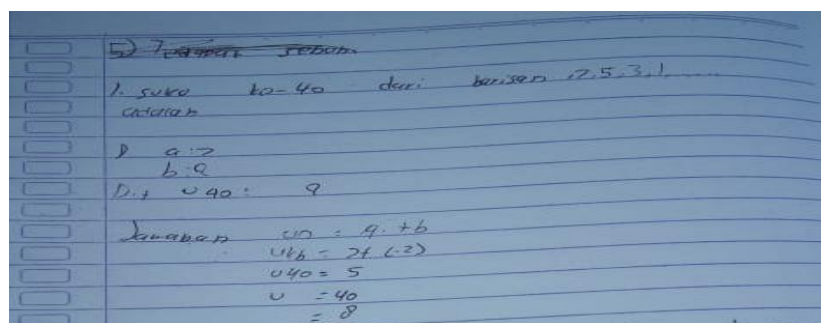 5)
1. suko ko-40 dari barisan 7,5,3,1, .....
adalah
D a:7
b:2
D.t U40: ?
Jawaban un = a. +b
= 7+ (-2)
U40 = 5
U = 40
= 8